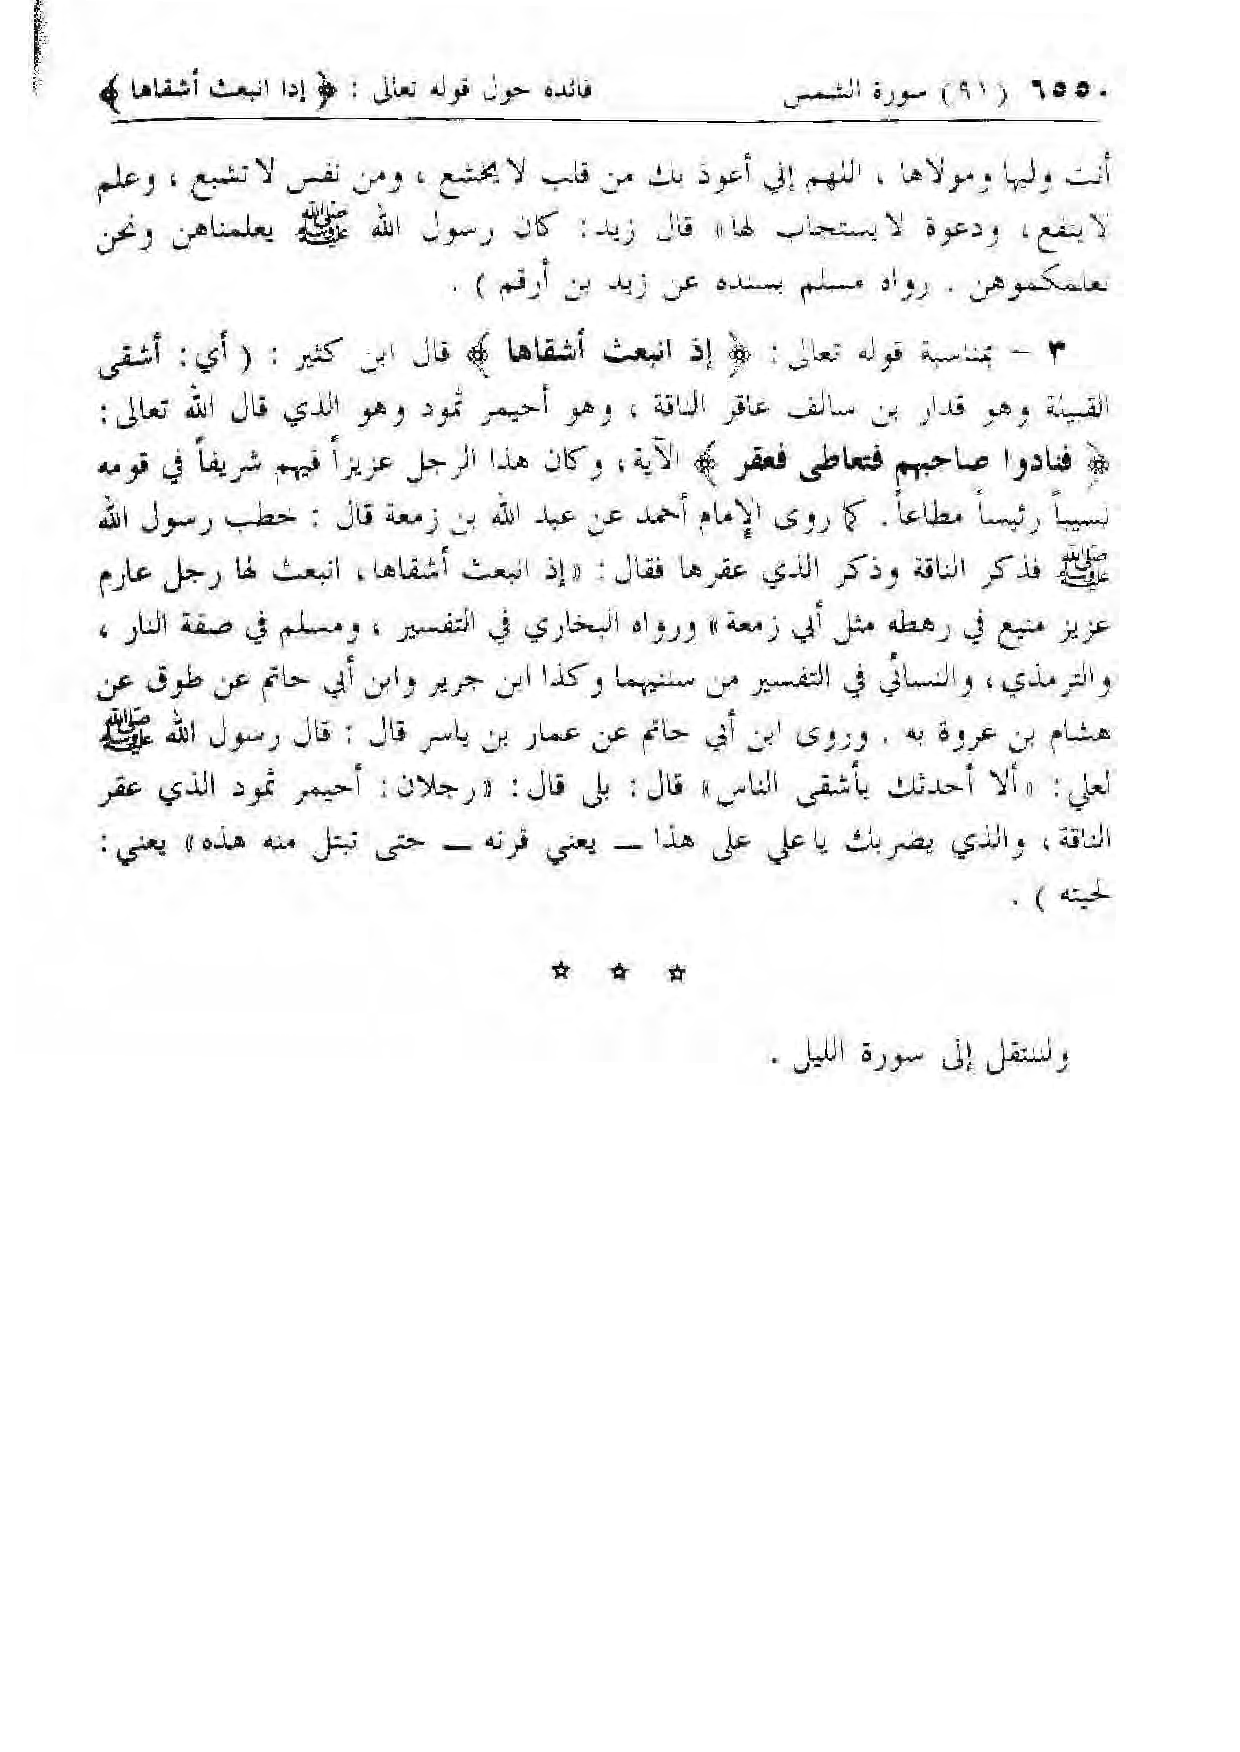 ٦٥٥٠ (٩١) سورة الشمس فائدة حول قوله تعالى : ﴿ إذا انبعث أشقاها ﴾
أنت وليها ومولاها ، اللهم إني أعوذ بك من قلب لا يخشع ، ومن نفس لا تشبع ، وعلم
لا ينفع ، ودعوة لا يستجاب لها » قال زيد : كان رسول الله ﷺ يعلمناهن ونحن
نعلمكموهن . رواه مسلم بسنده عن زيد بن أرقم ) .
٣ – بمناسبة قوله تعالى : ﴿ إذ انبعث أشقاها ﴾ قال ابن كثير : ( أي : أشقى
القبيلة وهو قدار بن سالف عاقر الناقة ، وهو أحيمر ثمود وهو الذي قال الله تعالى :
﴿ فنادوا صاحبهم فتعاطى فعقر ﴾ الآية ، وكان هذا الرجل عزيزاً فيهم شريفاً في قومه
نسيباً رئيساً مطاعاً . كما روى الإمام أحمد عن عبد الله بن زمعة قال : خطب رسول الله
ﷺ فذكر الناقة وذكر الذي عقرها فقال : « إذ انبعث أشقاها ، انبعث لها رجل عارم
عزيز منيع في رهطه مثل أبي زمعة » ورواه البخاري في التفسير ، ومسلم في صفة النار ،
والترمذي ، والنسائي في التفسير من سننيهما وكذا ابن جرير وابن أبي حاتم عن طوق عن
هشام بن عروة به . وروى ابن أبي حاتم عن عمار بن ياسر قال : قال رسول الله ﷺ
لعلي : « ألا أحدثك بأشقى الناس » قال : بلى قال : « رجلان : أحيمر ثمود الذي عقر
الناقة ، والذي يضربك يا علي على هذا – يعني قرنه – حتى تبتل منه هذه » يعني :
لحيته ) .
☆ ☆ ☆
ولننتقل إلى سورة الليل .